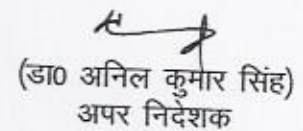 (डा0 अनिल कुमार सिंह)
अपर निदेशक